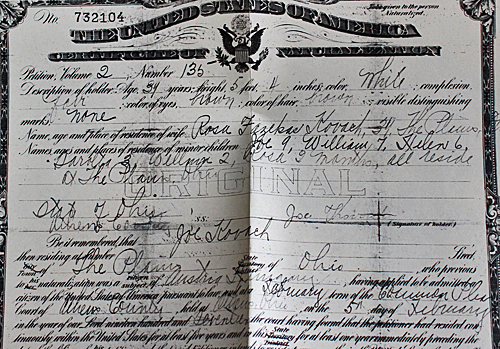 To be given to the person Naturalized.
No. 732104
THE UNITED STATES OF AMERICA
CERTIFICATE OF NATURALIZATION
Petition, Volume 2, Number 135
Description of holder: Age, 34 years; height, 5 feet, 4 inches; color, White; complexion,
color of eyes, brown; color of hair, brown; visible distinguishing
marks, none
Name, age and place of residence of wife, Rosa Kovach, 34, The Plains,
Names, ages and places of residence of minor children, Joe 9, William 7, Helen 6,
3, 2, 3 months, all reside
at The Plains Ohio
ORIGINAL
State of Ohio
Athens s.s:
Joe
(Signature of holder)
Be it remembered, that Joe Kovach
then residing at number Street,
of The Plains State of Ohio, who previous
to his naturalization was a subject of, having applied to be admitted a
citizen of the United States of America pursuant to law, and at a February term of the Pleas
Court of Athens County held at on the 5th day of February
in the year of our Lord nineteen hundred and the court having found that the petitioner had resided con-
tinuously within the United States for at least five years and in this State for at least one year immediately preceding the